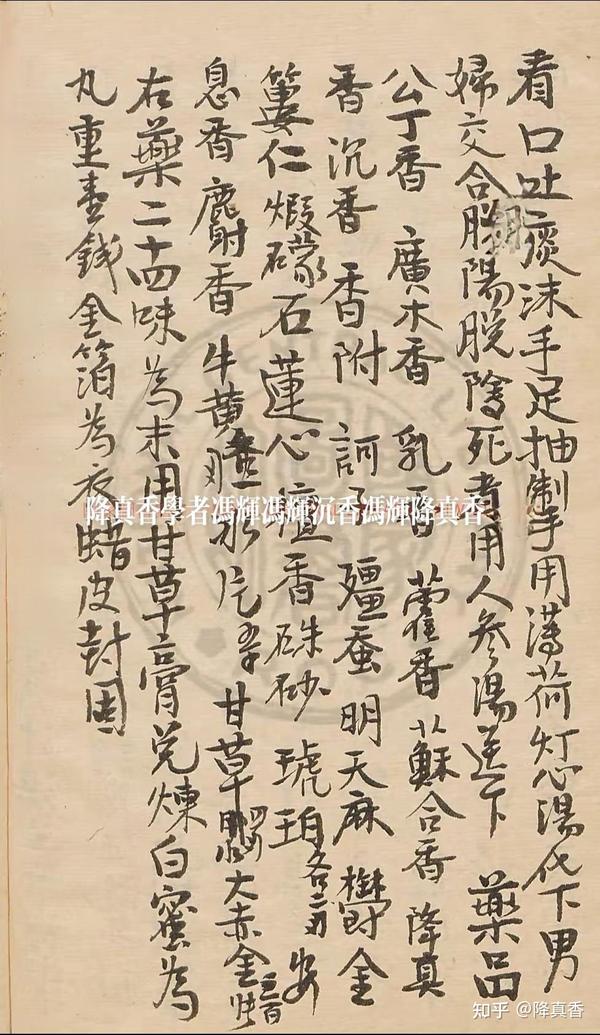 看口吐痰沫手足抽掣用薄荷灯心湯化下男
婦交合脫陽脫陰死者用人參湯送下 藥品
公丁香 廣木香 乳香 藿香 蘇合香 降真
香 沉香 香附 訶子 殭蚕 明天麻 欝金
蔞仁 煅礞石 蓮心 檀香 硃砂 琥珀各二刄 安
息香 麝香 牛黃 冰片 甘草 大赤金
右藥二十四味為末用甘草膏兌煉白蜜為
丸重壹錢金箔為衣蜡皮封固
降真香學者馮輝馮輝沉香馮輝降真香
知乎 @降真香